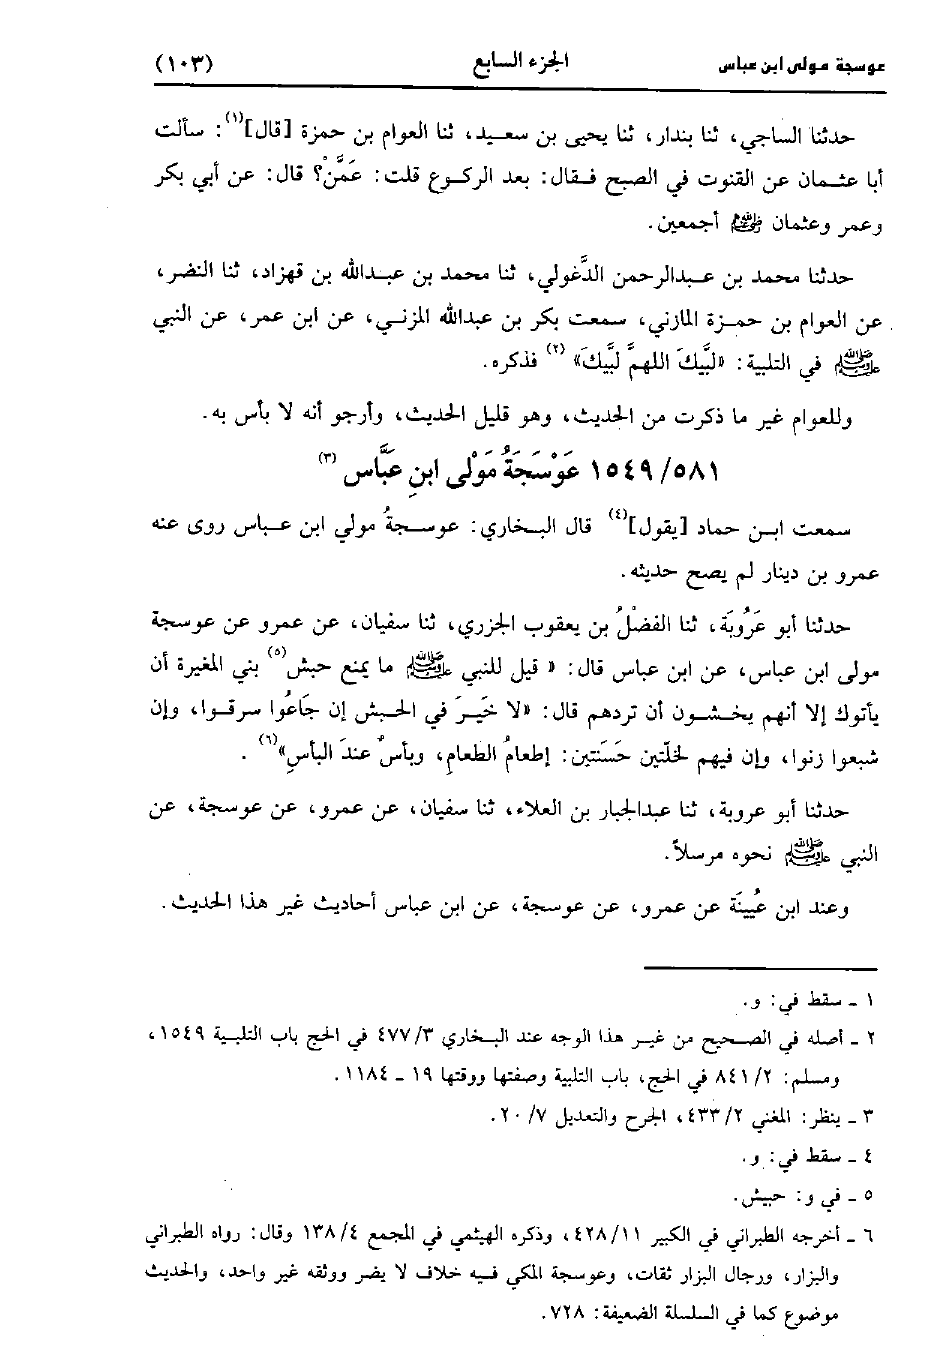 عوسجة مولى ابن عباس الجزء السابع (١٠٣)
حدثنا الساجي، ثنا بندار، ثنا يحيى بن سعيد، ثنا العوام بن حمزة [قال](١): سألت
أبا عثمان عن القنوت في الصبح فقال: بعد الركوع قلت: عَمَّنْ؟ قال: عن أبي بكر
وعمر وعثمان ﵃ أجمعين.
حدثنا محمد بن عبدالرحمن الدَّغولي، ثنا محمد بن عبدالله بن قهزاد، ثنا النضر،
عن العوام بن حمزة المازني، سمعت بكر بن عبدالله المزني، عن ابن عمر، عن النبي
ﷺ في التلبية: «لبَّيكَ اللهمَّ لبَّيكَ» (٢) فذكره.
وللعوام غير ما ذكرت من الحديث، وهو قليل الحديث، وأرجو أنه لا بأس به.
١٥٤٩/٥٨١ عَوْسَجَةُ مَوْلى ابنِ عَبَّاس (٣)
سمعت ابن حماد [يقول](٤) قال البخاري: عوسجةُ مولى ابن عباس روى عنه
عمرو بن دينار لم يصح حديثه.
حدثنا أبو عَرُوبَة، ثنا الفضْلُ بن يعقوب الجزري، ثنا سفيان، عن عمرو عن عوسجة
مولى ابن عباس، عن ابن عباس قال: « قيل للنبي ﷺ ما يمنع حبش(٥) بني المغيرة أن
يأتوك إلا أنهم يخشون أن تردهم قال: «لا خَيرَ في الحبش إن جَاعُوا سرقوا، وإن
شبعوا زنوا، وإن فيهم لخلَّتين حَسَنَتين: إطعامُ الطعامِ، وبأسٌ عندَ البأسِ»(٦) .
حدثنا أبو عروبة، ثنا عبدالجبار بن العلاء، ثنا سفيان، عن عمرو، عن عوسجة، عن
النبي ﷺ نحوه مرسلاً.
وعند ابن عُيينَة عن عمرو، عن عوسجة، عن ابن عباس أحاديث غير هذا الحديث.
١ ـ سقط في: و.
٢ ـ أصله في الصحيح من غير هذا الوجه عند البخاري ٤٧٧/٣ في الحج باب التلبية ١٥٤٩،
ومسلم: ٨٤١/٢ في الحج، باب التلبية وصفتها ووقتها ١٩ ـ ١١٨٤.
٣ ـ ينظر: المغني ٤٣٣/٢، الجرح والتعديل ٢٠/٧.
٤ ـ سقط في: و.
٥ ـ في و: حبيش.
٦ ـ أخرجه الطبراني في الكبير ٤٢٨/١١، وذكره الهيثمي في المجمع ١٣٨/٤ وقال: رواه الطبراني
والبزار، ورجال البزار ثقات، وعوسجة المكي فيه خلاف لا يضر ووثقه غير واحد، والحديث
موضوع كما في السلسلة الضعيفة: ٧٢٨.